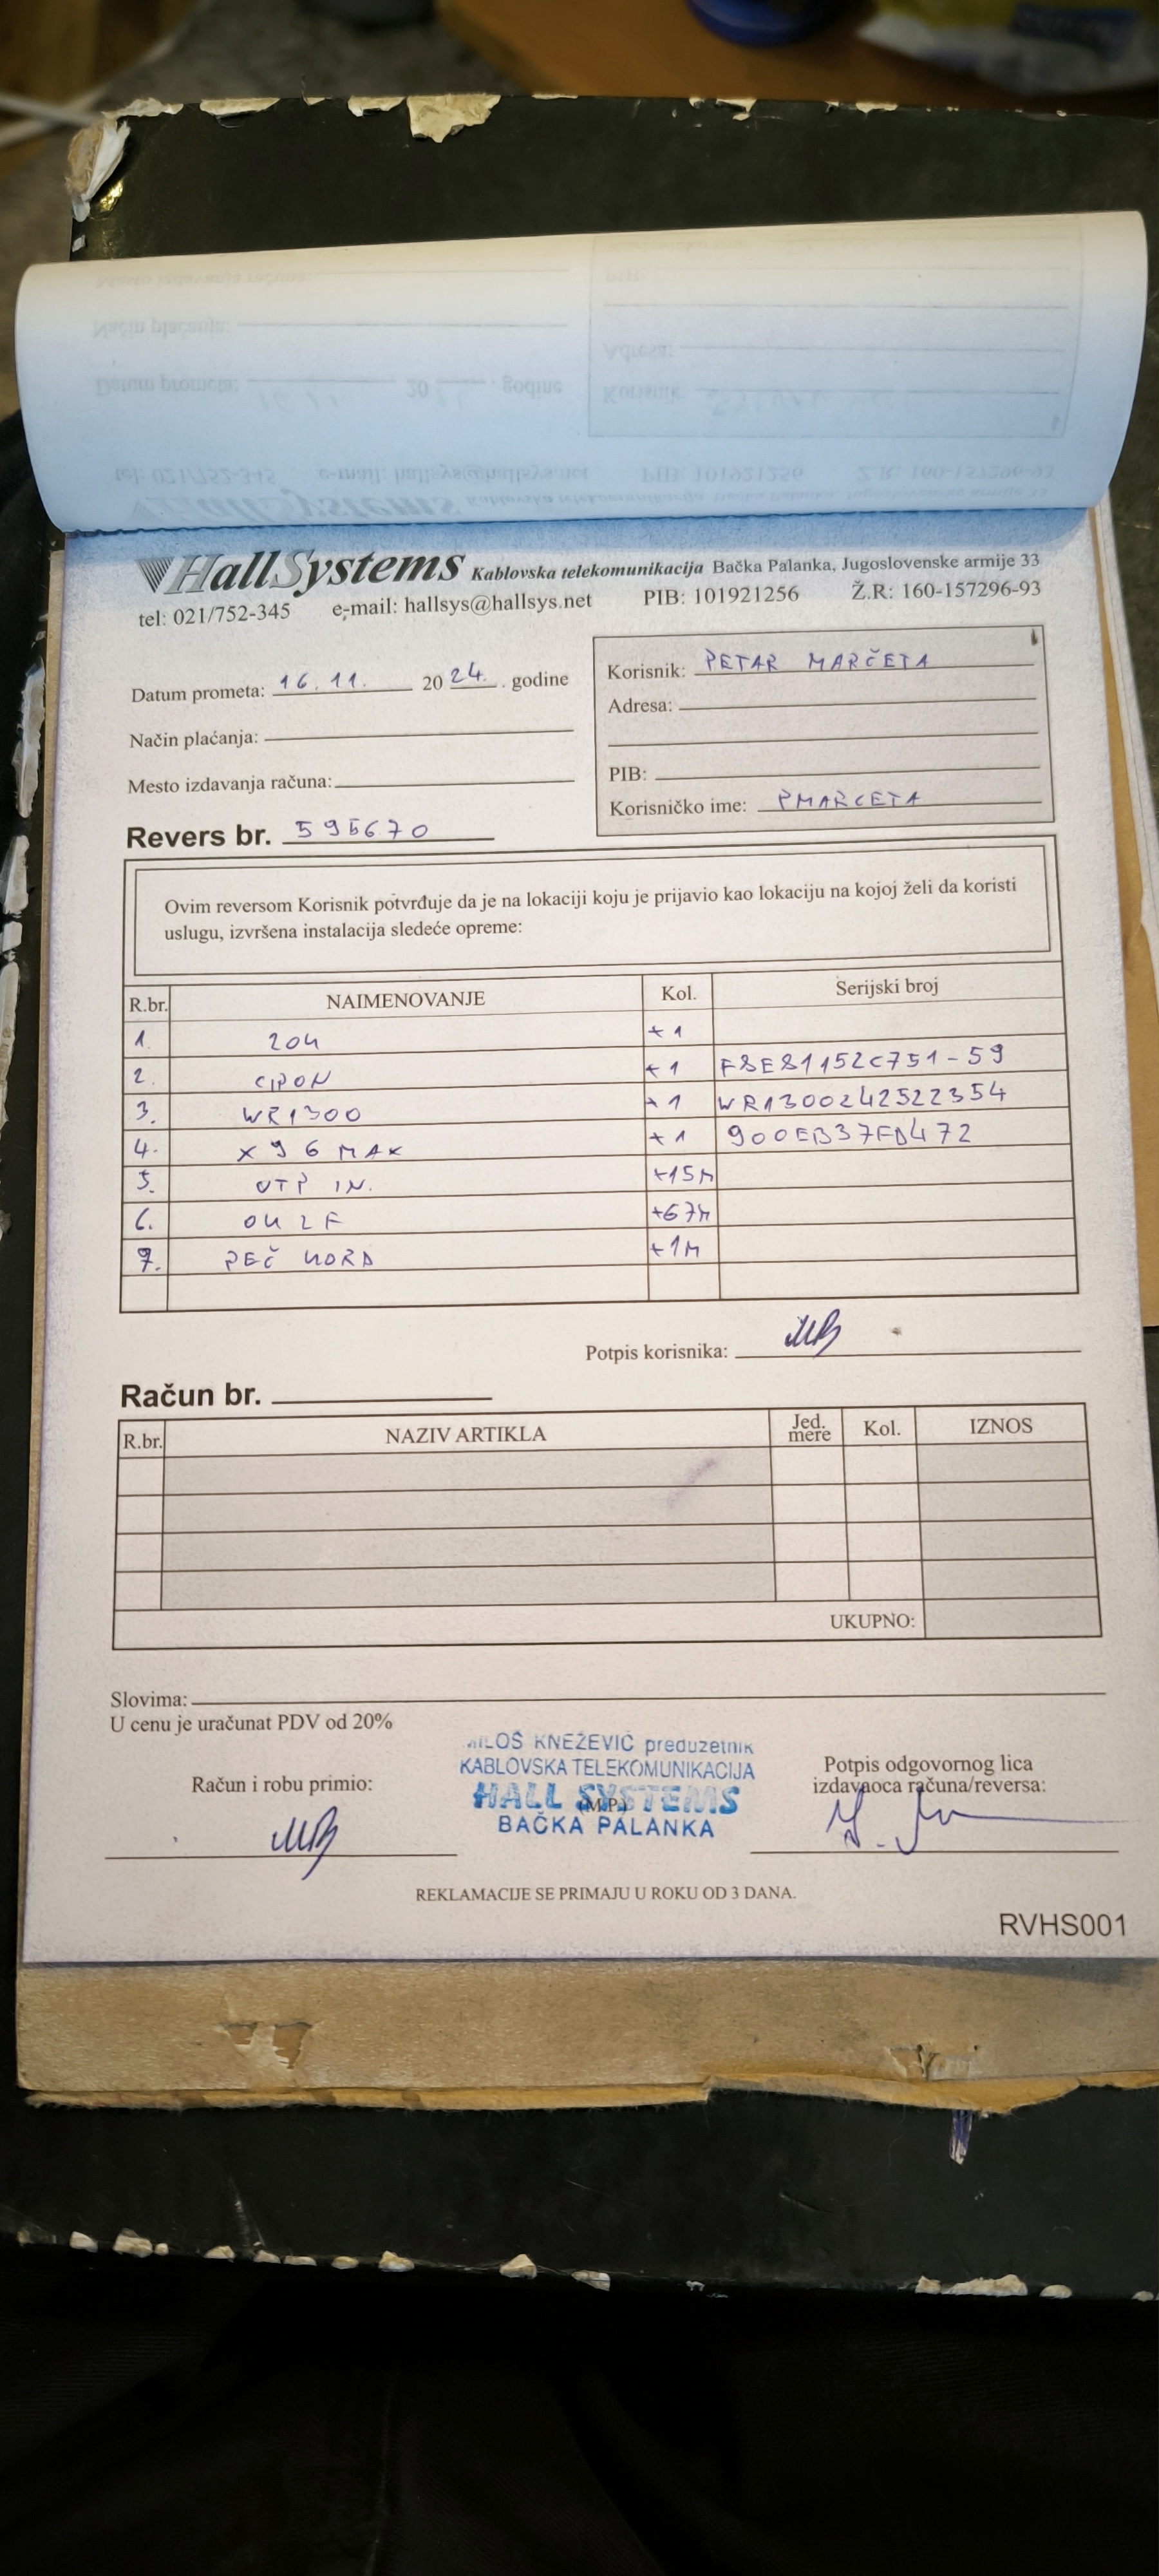 HallSystems Kablovska telekomunikacija Bačka Palanka, Jugoslovenske armije 33
tel: 021/752-345 e-mail: hallsys@hallsys.net PIB: 101921256 Ž.R: 160-157296-93
Datum prometa: 16.11. 2024. godine
Način plaćanja:
Mesto izdavanja računa:
Korisnik: PETAR MARČETA
Adresa:
PIB:
Korisničko ime: PMARCETA
Revers br. 595670
Ovim reversom Korisnik potvrđuje da je na lokaciji koju je prijavio kao lokaciju na kojoj želi da koristi
uslugu, izvršena instalacija sledeće opreme:
R.br. NAIMENOVANJE Kol. Serijski broj
1. 204 +1
2. CPON +1 F8E81152C751-59
3. WR1300 +1 WR1300242522354
4. X96 MAX +1 900EB37FD472
5. UTP IN. +15M
6. OK 2F +67M
7. PEČ KORD +1M
Potpis korisnika:
Račun br.
R.br. NAZIV ARTIKLA Jed. mere Kol. IZNOS
UKUPNO:
Slovima:
U cenu je uračunat PDV od 20%
Račun i robu primio:
MILOŠ KNEŽEVIĆ preduzetnik
KABLOVSKA TELEKOMUNIKACIJA
HALL SYSTEMS
(M.P.)
BAČKA PALANKA
Potpis odgovornog lica
izdavaoca računa/reversa:
REKLAMACIJE SE PRIMAJU U ROKU OD 3 DANA.
RVHS001